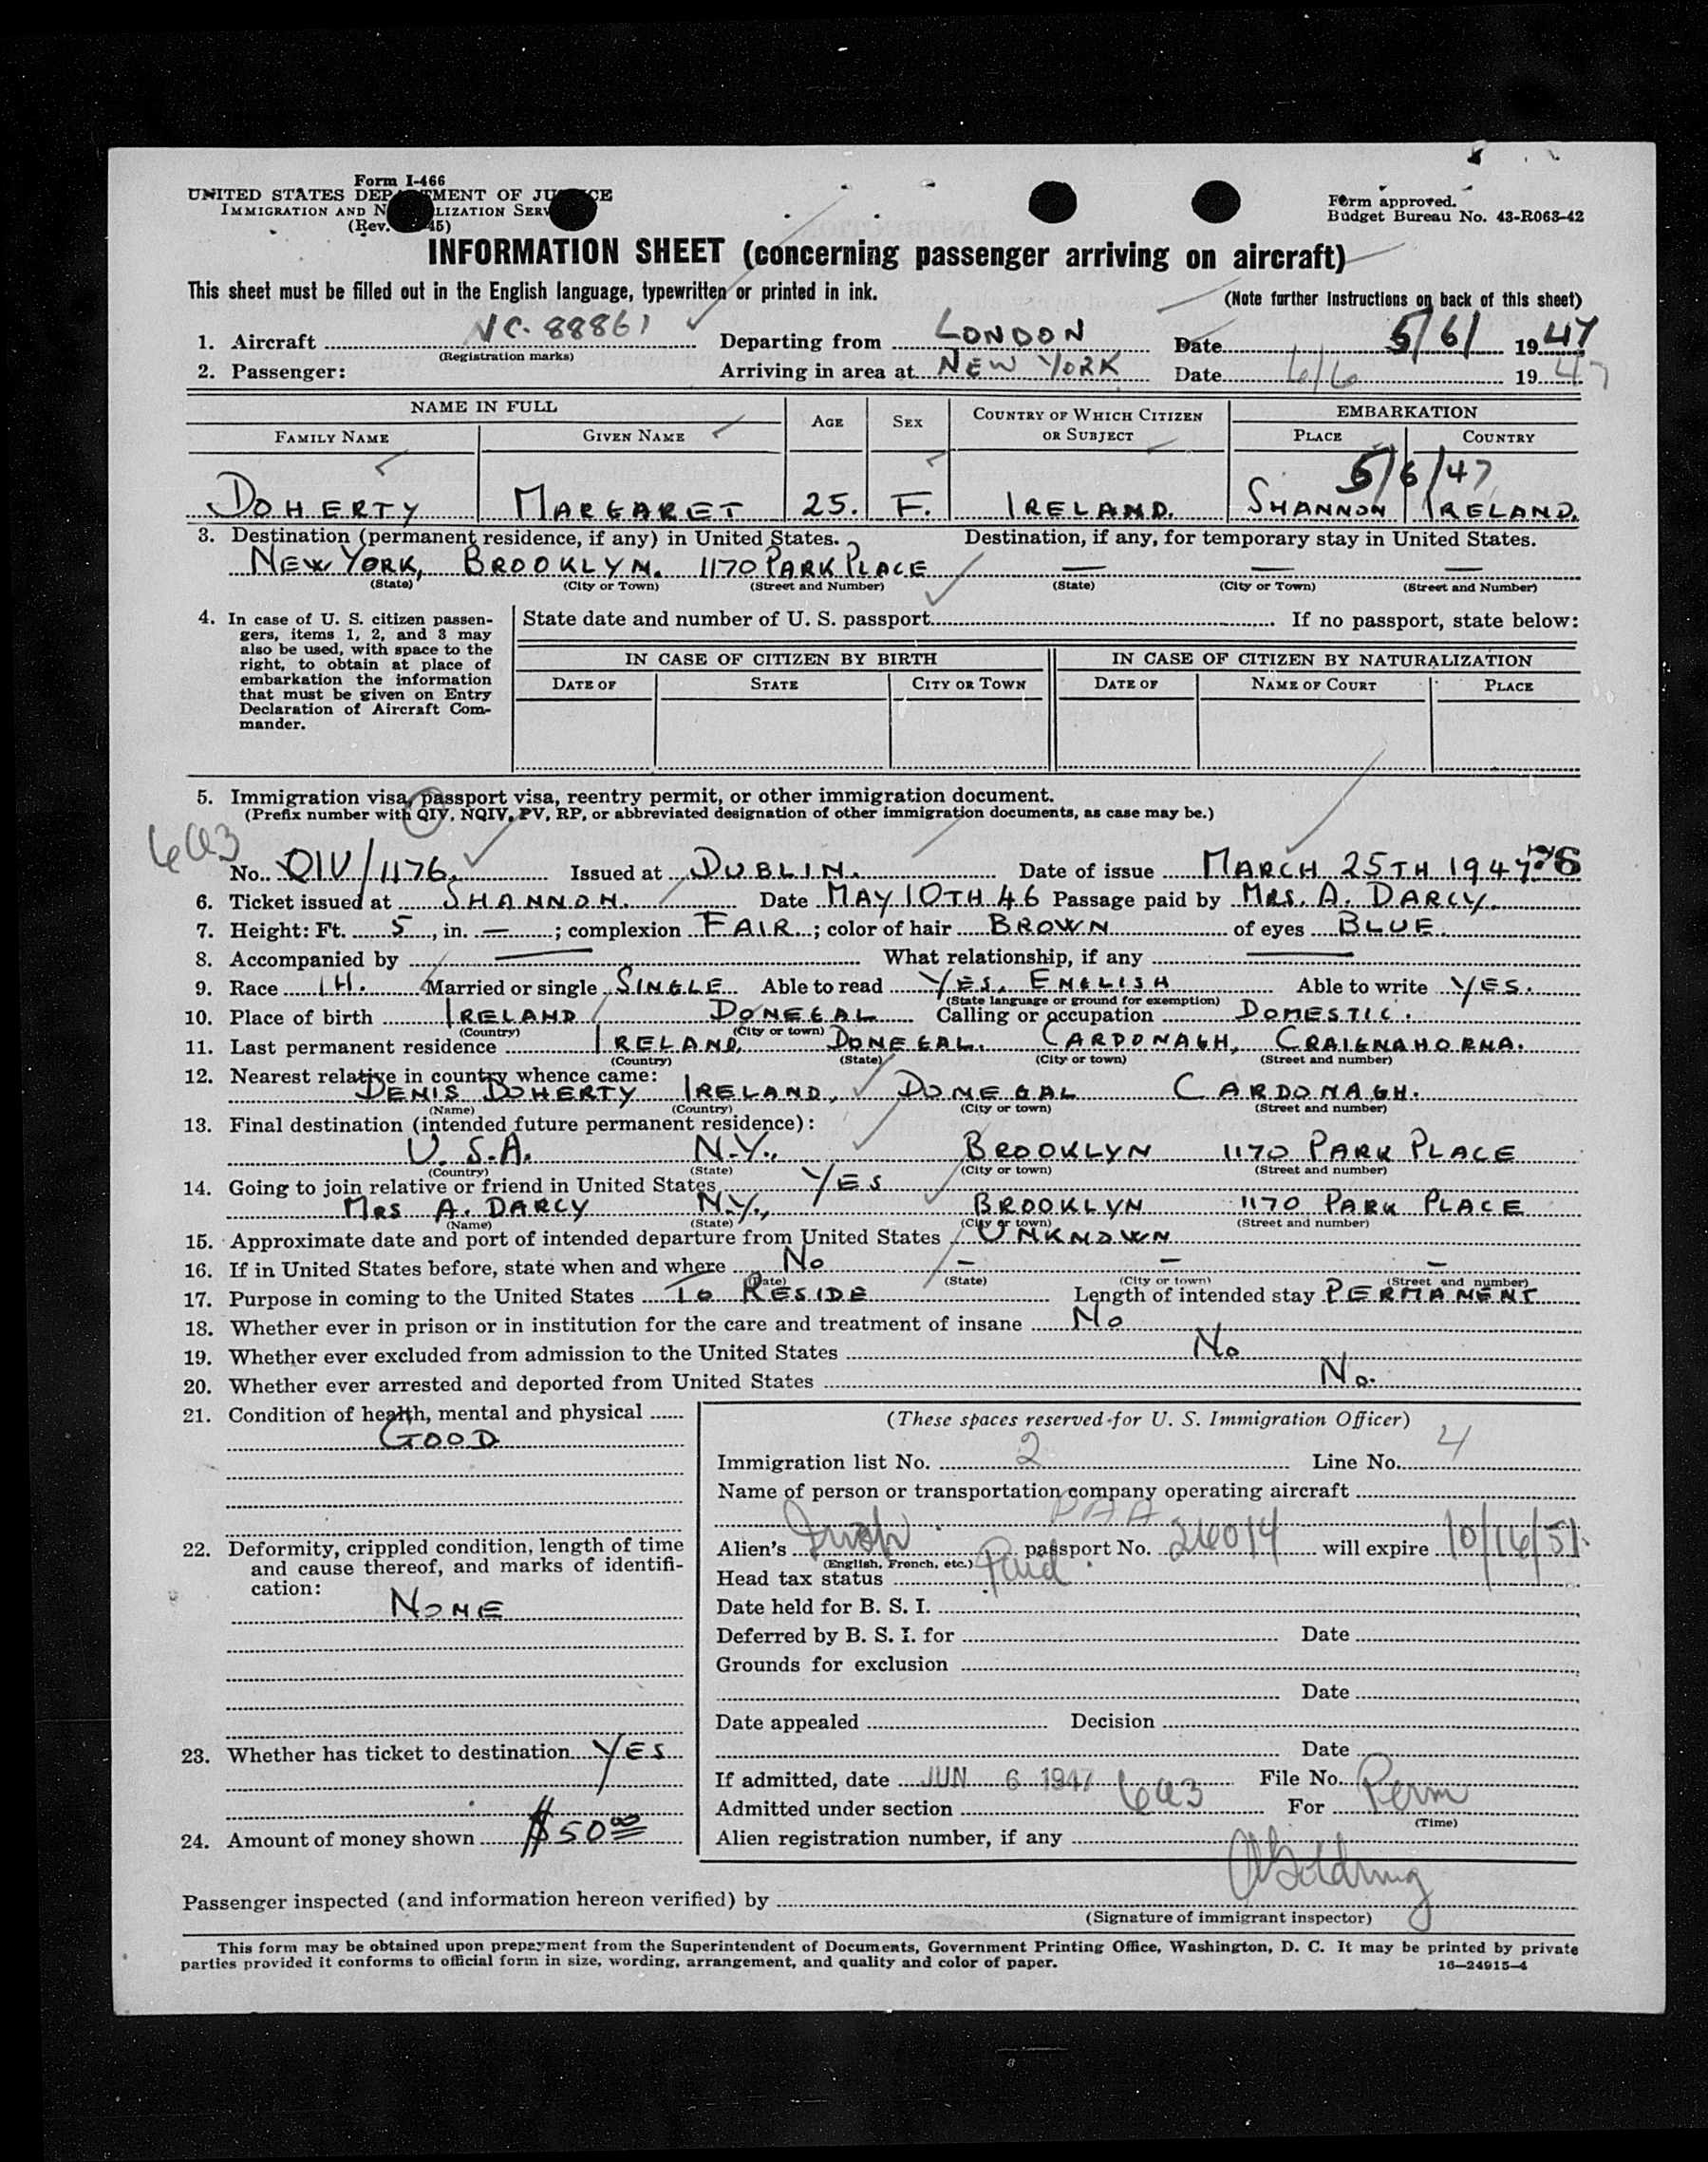 Form I-466
UNITED STATES DEPARTMENT OF JUSTICE
IMMIGRATION AND NATURALIZATION SERVICE
(Rev. 45)
Form approved.
Budget Bureau No. 43-R063-42
INFORMATION SHEET (concerning passenger arriving on aircraft)
This sheet must be filled out in the English language, typewritten or printed in ink.
(Note further instructions on back of this sheet)
1. Aircraft NC-88861 Departing from LONDON Date 5/6/ 1947
(Registration marks)
2. Passenger: Arriving in area at NEW YORK Date 6/6 1947
NAME IN FULL AGE SEX COUNTRY OF WHICH CITIZEN OR SUBJECT EMBARKATION
FAMILY NAME GIVEN NAME PLACE COUNTRY
5/6/47
DOHERTY MARGARET 25. F. IRELAND. SHANNON IRELAND.
3. Destination (permanent residence, if any) in United States. Destination, if any, for temporary stay in United States.
NEW YORK, BROOKLYN. 1170 PARK PLACE — — —
(State) (City or Town) (Street and Number) (State) (City or Town) (Street and Number)
4. In case of U. S. citizen passengers, items 1, 2, and 3 may also be used, with space to the right, to obtain at place of embarkation the information that must be given on Entry Declaration of Aircraft Commander.
State date and number of U. S. passport If no passport, state below:
IN CASE OF CITIZEN BY BIRTH IN CASE OF CITIZEN BY NATURALIZATION
DATE OF STATE CITY OR TOWN DATE OF NAME OF COURT PLACE
5. Immigration visa, passport visa, reentry permit, or other immigration document.
(Prefix number with QIV, NQIV, PV, RP, or abbreviated designation of other immigration documents, as case may be.)
6a3
No. QIV/1176. Issued at DUBLIN. Date of issue MARCH 25TH 1947
6. Ticket issued at SHANNON. Date MAY 10TH 46 Passage paid by MRS. A. DARCY.
7. Height: Ft. 5, in. —; complexion FAIR; color of hair BROWN of eyes BLUE.
8. Accompanied by — What relationship, if any —
9. Race IH. Married or single SINGLE Able to read YES. ENGLISH Able to write YES.
(State language or ground for exemption)
10. Place of birth IRELAND DONEGAL Calling or occupation DOMESTIC.
(Country) (City or town)
11. Last permanent residence IRELAND, DONEGAL. CARDONAGH, CRAIGNAHORNA.
(Country) (State) (City or town) (Street and number)
12. Nearest relative in country whence came:
DENIS DOHERTY IRELAND, DONEGAL CARDONAGH.
(Name) (Country) (City or town) (Street and number)
13. Final destination (intended future permanent residence):
U.S.A. N.Y., BROOKLYN 1170 PARK PLACE
(Country) (State) (City or town) (Street and number)
14. Going to join relative or friend in United States YES
MRS A. DARCY N.Y., BROOKLYN 1170 PARK PLACE
(Name) (State) (City or town) (Street and number)
15. Approximate date and port of intended departure from United States UNKNOWN
16. If in United States before, state when and where No – – –
(Date) (State) (City or town) (Street and number)
17. Purpose in coming to the United States To RESIDE Length of intended stay PERMANENT
18. Whether ever in prison or in institution for the care and treatment of insane No
19. Whether ever excluded from admission to the United States No
20. Whether ever arrested and deported from United States No.
21. Condition of health, mental and physical
GOOD
22. Deformity, crippled condition, length of time and cause thereof, and marks of identification:
NONE
23. Whether has ticket to destination YES
24. Amount of money shown $50.00
(These spaces reserved for U. S. Immigration Officer)
Immigration list No. 2 Line No. 4
Name of person or transportation company operating aircraft
PAA
Alien's Irish passport No. 26014 will expire 10/16/51
(English, French, etc.)
Head tax status Paid
Date held for B. S. I.
Deferred by B. S. I. for Date
Grounds for exclusion
Date
Date appealed Decision
Date
If admitted, date JUN 6 1947 File No.
Admitted under section 6a3 For Perm
(Time)
Alien registration number, if any
Passenger inspected (and information hereon verified) by
(Signature of immigrant inspector)
This form may be obtained upon prepayment from the Superintendent of Documents, Government Printing Office, Washington, D. C. It may be printed by private
parties provided it conforms to official form in size, wording, arrangement, and quality and color of paper. 16—24915-4
8